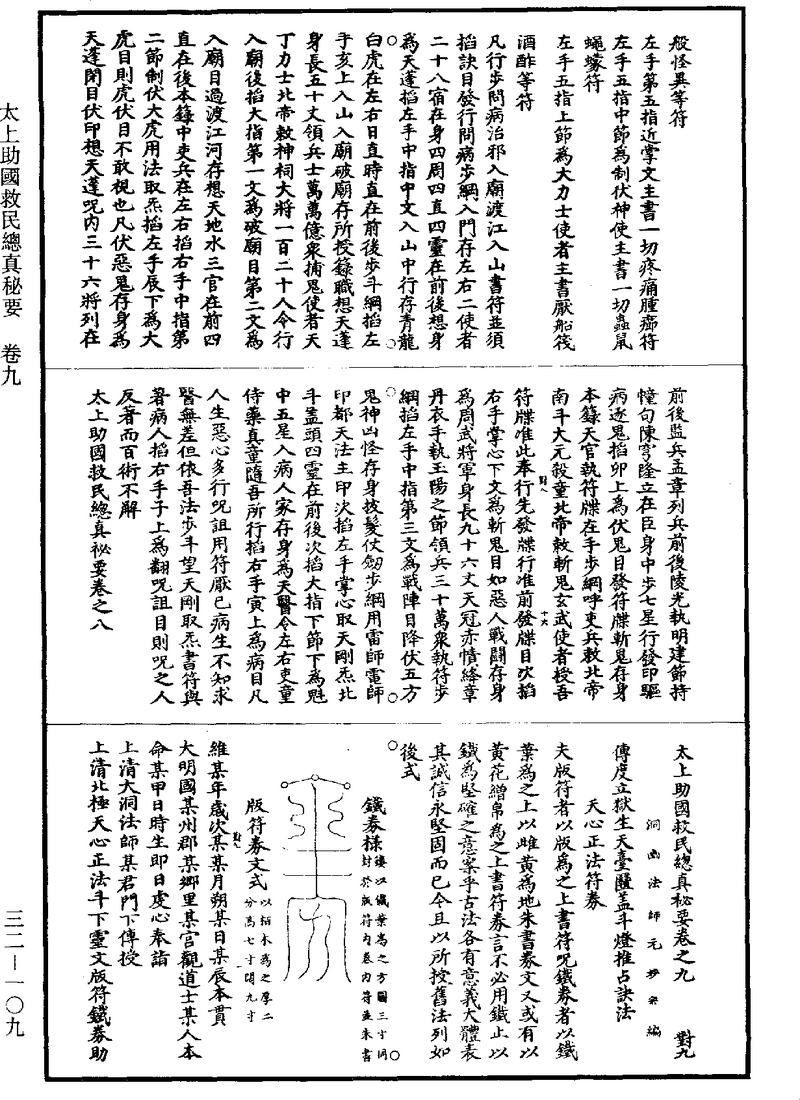 太上助國救民總真秘要　卷九
三二—一〇九
般怪異等符
左手第五指近掌文主書一切疼痛腫癤符
左手五指中節為制伏神使主書一切蟲鼠
蠅蠓符
左手五指上節為大力士使者主書厭船筏
酒酢等符
凡行步問病治邪入廟渡江入山書符並須
掐訣目發行問病步綱入門存左右二使者
二十八宿在身四周四直四靈在前後想身
為天蓬掐左手中指中文入山中行存青龍
白虎在左右日直時直在前後步斗綱掐左
手亥上入山入廟破廟存所授籙職想天蓬
身長五十丈領兵士萬萬億眾捕鬼使者天
丁力士北帝敕神祠大將一百二十人令行
入廟後掐大指第一文為破廟目第二文為
入廟目過渡江河存想天地水三官在前四
直在後本籙中吏兵在左右掐右手中指第
二節制伏大虎用法取炁掐左手辰下為大
虎目則虎伏目不敢視也凡伏惡鬼存身為
天蓬閉目伏印想天蓬呪內三十六將列在
前後監兵孟章列兵前後陵光執明建節持
幢句陳穹隆立在臣身中步七星行發印驅
病逐鬼掐卯上為伏鬼目發符牒斬鬼存身
本籙天官執符牒在手步綱呼吏兵敕北帝
南斗大元殺童北帝敕斬鬼玄武使者授吾
符牒准此奉行先發牒行准前發牒目次掐
右手掌心下文為斬鬼目如惡人戰鬭存身
為周武將軍身長九十六丈天冠赤幘絳章
丹衣手執玉陽之節領兵三十萬眾執符步
綱掐左手中指第三文為戰陣目降伏五方
鬼神凶怪存身披髮仗劒步綱用雷師電師
印都天法主印次掐左手掌心取天剛炁北
斗蓋頭四靈在前後次掐大指下節下為魁
中五星入病人家存身為天醫令左右吏童
侍藥真童隨吾所行掐右手寅上為病目凡
人生惡心多行呪詛用符厭巳病生不知求
醫無差但依吾法步斗望天剛取炁書符與
著病人掐右手子上為翻呪詛目則呪之人
反著而百術不解
太上助國救民總真祕要卷之八
太上助國救民總真祕要卷之九　對九
洞幽法師元妙宗編
傳度立獄生天臺醮蓋斗燈推占訣法
天心正法符券
夫版符者以版為之上書符呪鐵券者以鐵
葉為之上以雌黃為地朱書券文又或有以
黃花繒帛為之上書符券言不必用鐵止以
鐵為堅確之意案乎古法各有意義大體表
其誠信永堅固而已今且以所授舊法列如
後式
鐵券樣後以鐵葉為之方圓三寸同
封於版符內券內符並朱書
版符券文式以栢木為之厚二
分高七寸闊九寸
維某年歲次某某月朔某日某辰本貫
大明國某州郡某鄉里某宮觀道士某人本
命某甲日時生即日虔心奉詣
上清大洞法師某君門下傳授
上清北極天心正法斗下靈文版符鐵券助